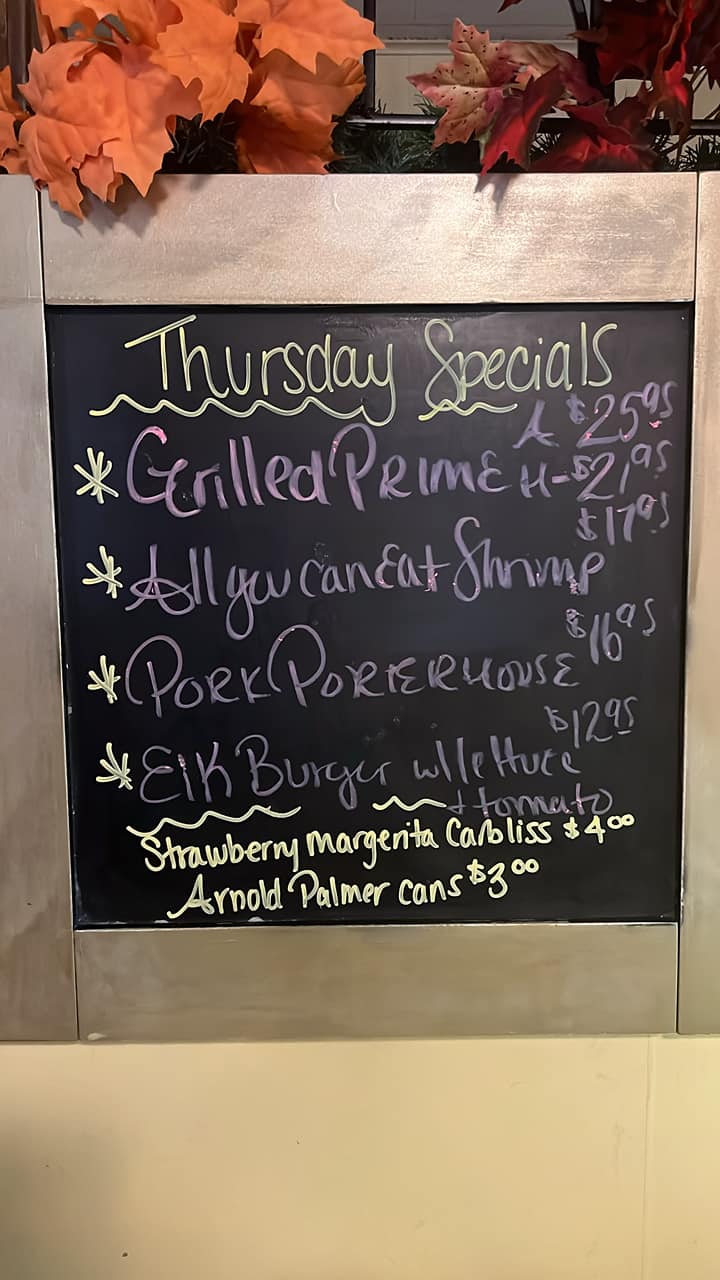 Thursday Specials
A $25.95
* Grilled PRIME H-$21.95
$17.95
* All you can Eat Shrimp
$16.95
* PORK PORTERHOUSE
$12.95
* Elk Burger w/lettuce
+ tomato
Strawberry Margerita Carbliss $4.00
Arnold Palmer cans $3.00